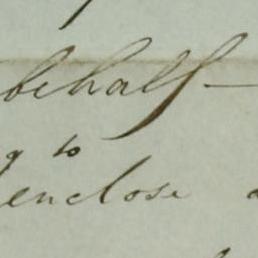 behalf —
to
enclose